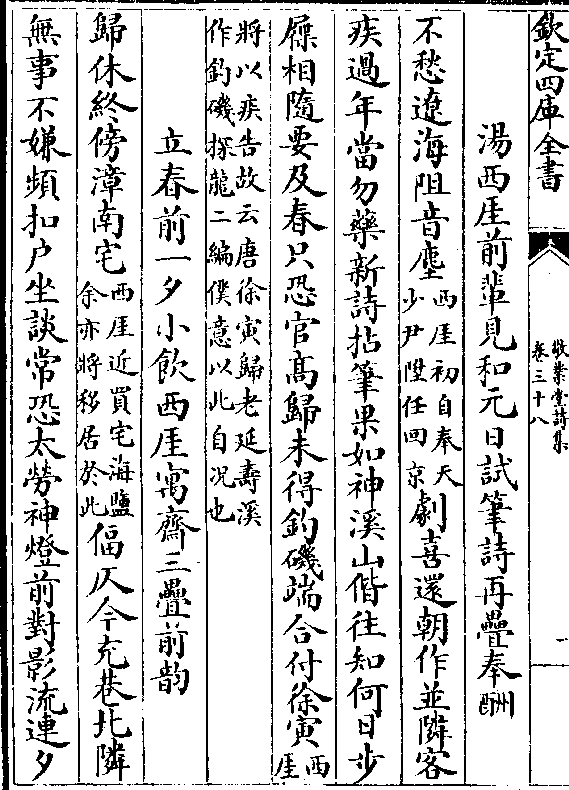 欽定四庫全書
敬業堂詩集
卷三十八
一
湯西厓前輩見和元日試筆詩再疊奉酬
不愁遼海阻音塵西厓初自奉天少尹陞任回京劇喜還朝作並隣客
疾過年當勿藥新詩拈筆果如神溪山偕往知何日步
屧相隨要及春只恐官髙歸未得釣磯端合付徐寅西厓
將以疾告故云唐徐寅歸老延壽溪作釣磯探龍二編僕意以此自况也
立春前一夕小飲西厓寓齋三疊前韵
歸休終傍漳南宅西厓近買宅海鹽余亦將移居於此偪仄今充巷北隣
無事不嫌頻扣户坐談常恐太勞神燈前對影流連夕